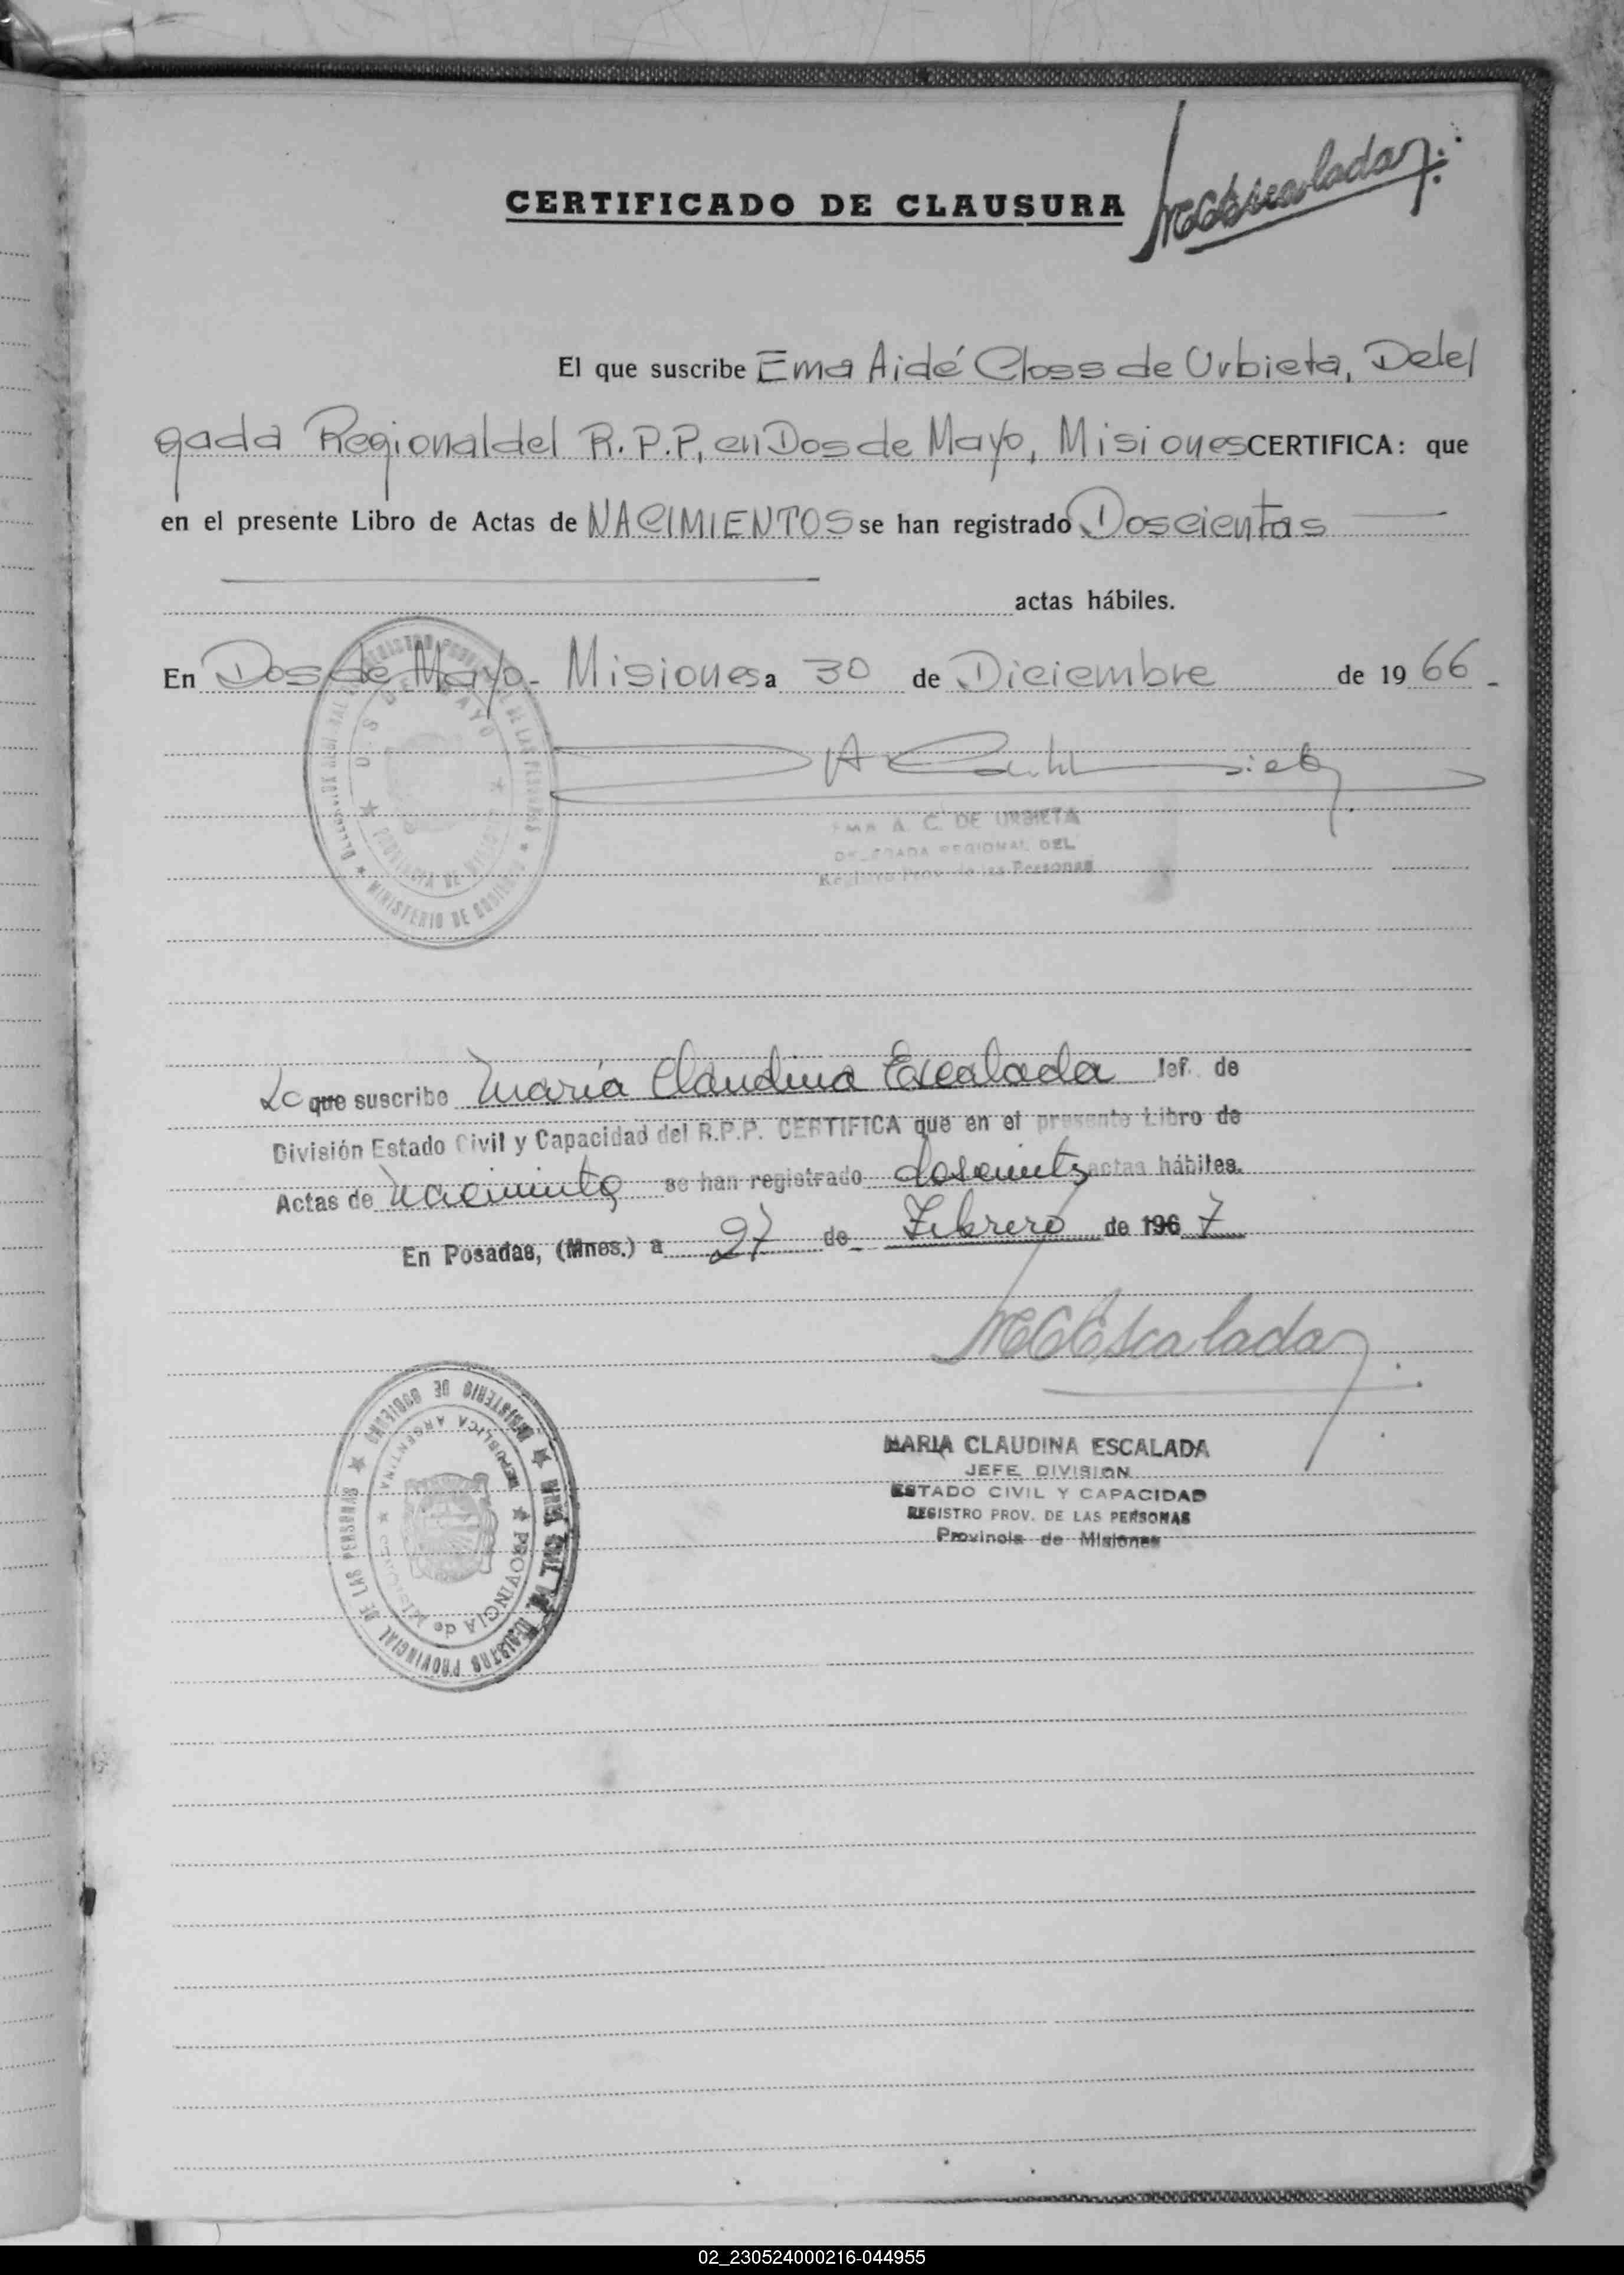 CERTIFICADO DE CLAUSURA
MCEscalada
El que suscribe Ema Aidé Closs de Urbieta, Dele
gada Regional del R.P.P, en Dos de Mayo, Misiones CERTIFICA: que
en el presente Libro de Actas de NACIMIENTOS se han registrado Doscientas
actas hábiles.
En Dos de Mayo - Misiones a 30 de Diciembre de 19 66 -
REGISTRO PROVINCIAL DE LAS PERSONAS ★ MINISTERIO DE GOBIERNO ★
DOS DE MAYO ★ PROVINCIA DE MISIONES ★
EMA A. C. DE URBIETA
DELEGADA REGIONAL DEL
Registro Prov de las Personas
La que suscribe María Claudina Escalada Jef. de
División Estado Civil y Capacidad del R.P.P. CERTIFICA que en el presente Libro de
Actas de Nacimiento se han registrado doscientas actas hábiles.
En Posadas, (Mnes.) a 27 de Febrero de 196 7
MCEscalada
MARIA CLAUDINA ESCALADA
JEFE DIVISION
ESTADO CIVIL Y CAPACIDAD
REGISTRO PROV. DE LAS PERSONAS
Provincia de Misiones
★ MINISTERIO DE GOBIERNO ★ REGISTRO PROVINCIAL DE LAS PERSONAS
REPUBLICA ARGENTINA ★ PROVINCIA de MISIONES ★
02_230524000216-044955